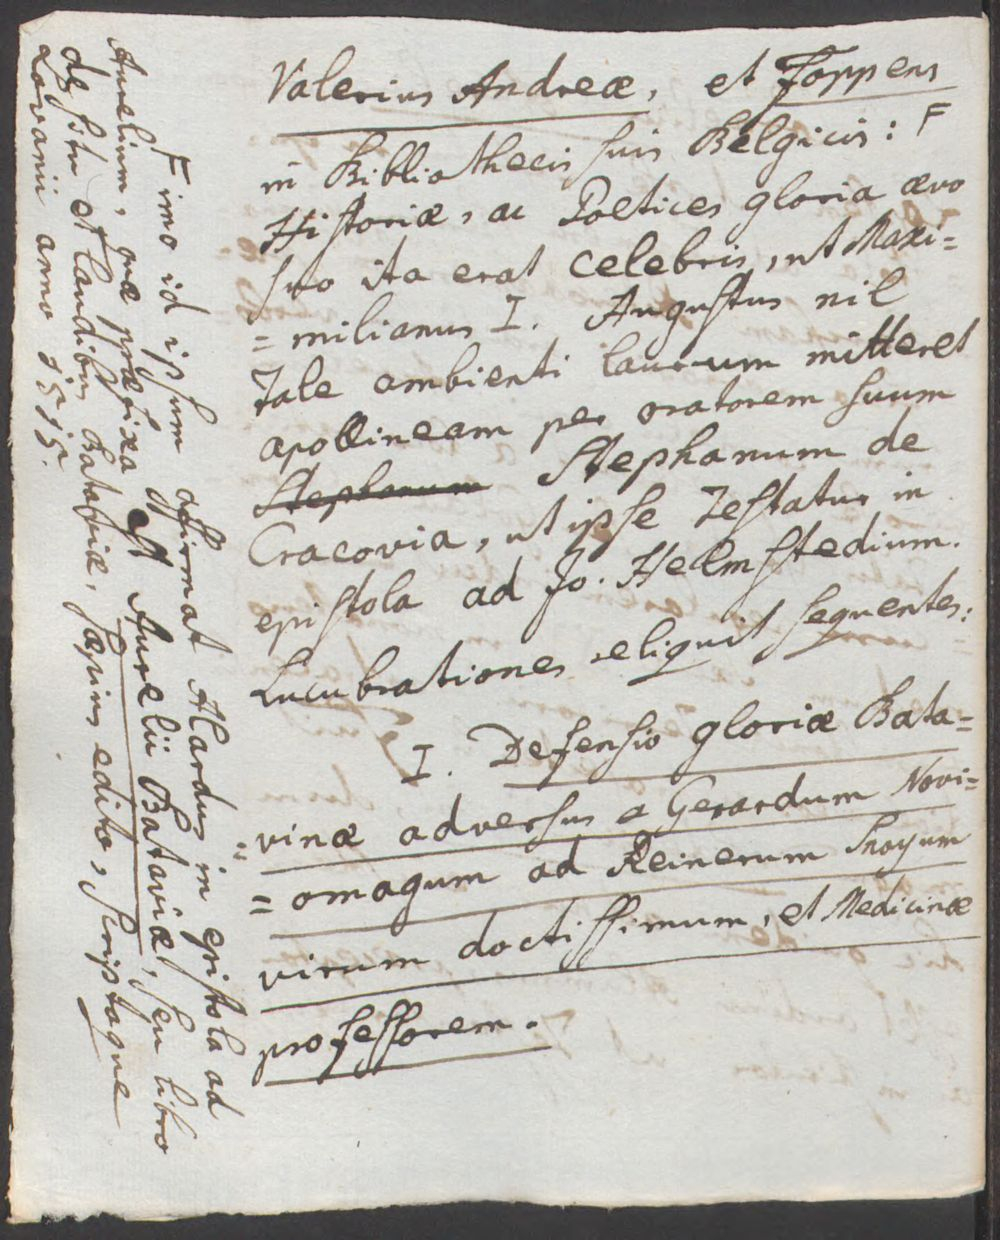 Valerius Andreæ, et Foppens
in Bibliothecis suis Belgicis: F
Historiæ, ac Poetices gloria ævo
suo ita erat celebris, ut Maxi=
=milianus I. Augustus nil
tale ambienti laurum mitteret
apollineam per oratorem suum
Stephanum Stephanum de
Cracovia, ut ipse testatur in
epistola ad Jo. Helmstedium.
Lucubrationes reliquit sequentes:
I. Defensio gloriæ Bata=
=vinæ adversus a Gerardum Novi=
=omagum ad Reinerum Snoyum
virum doctissimum, et Medicinæ
professorem.
F imo id ipsum affirmat Alardus in epistola ad
Aurelium, quæ præfixa est Aurelii Bataviæ, seu libro
de situ et laudibus Bataviæ, sæpius edito, scriptaque
Lovanii anno 1515.